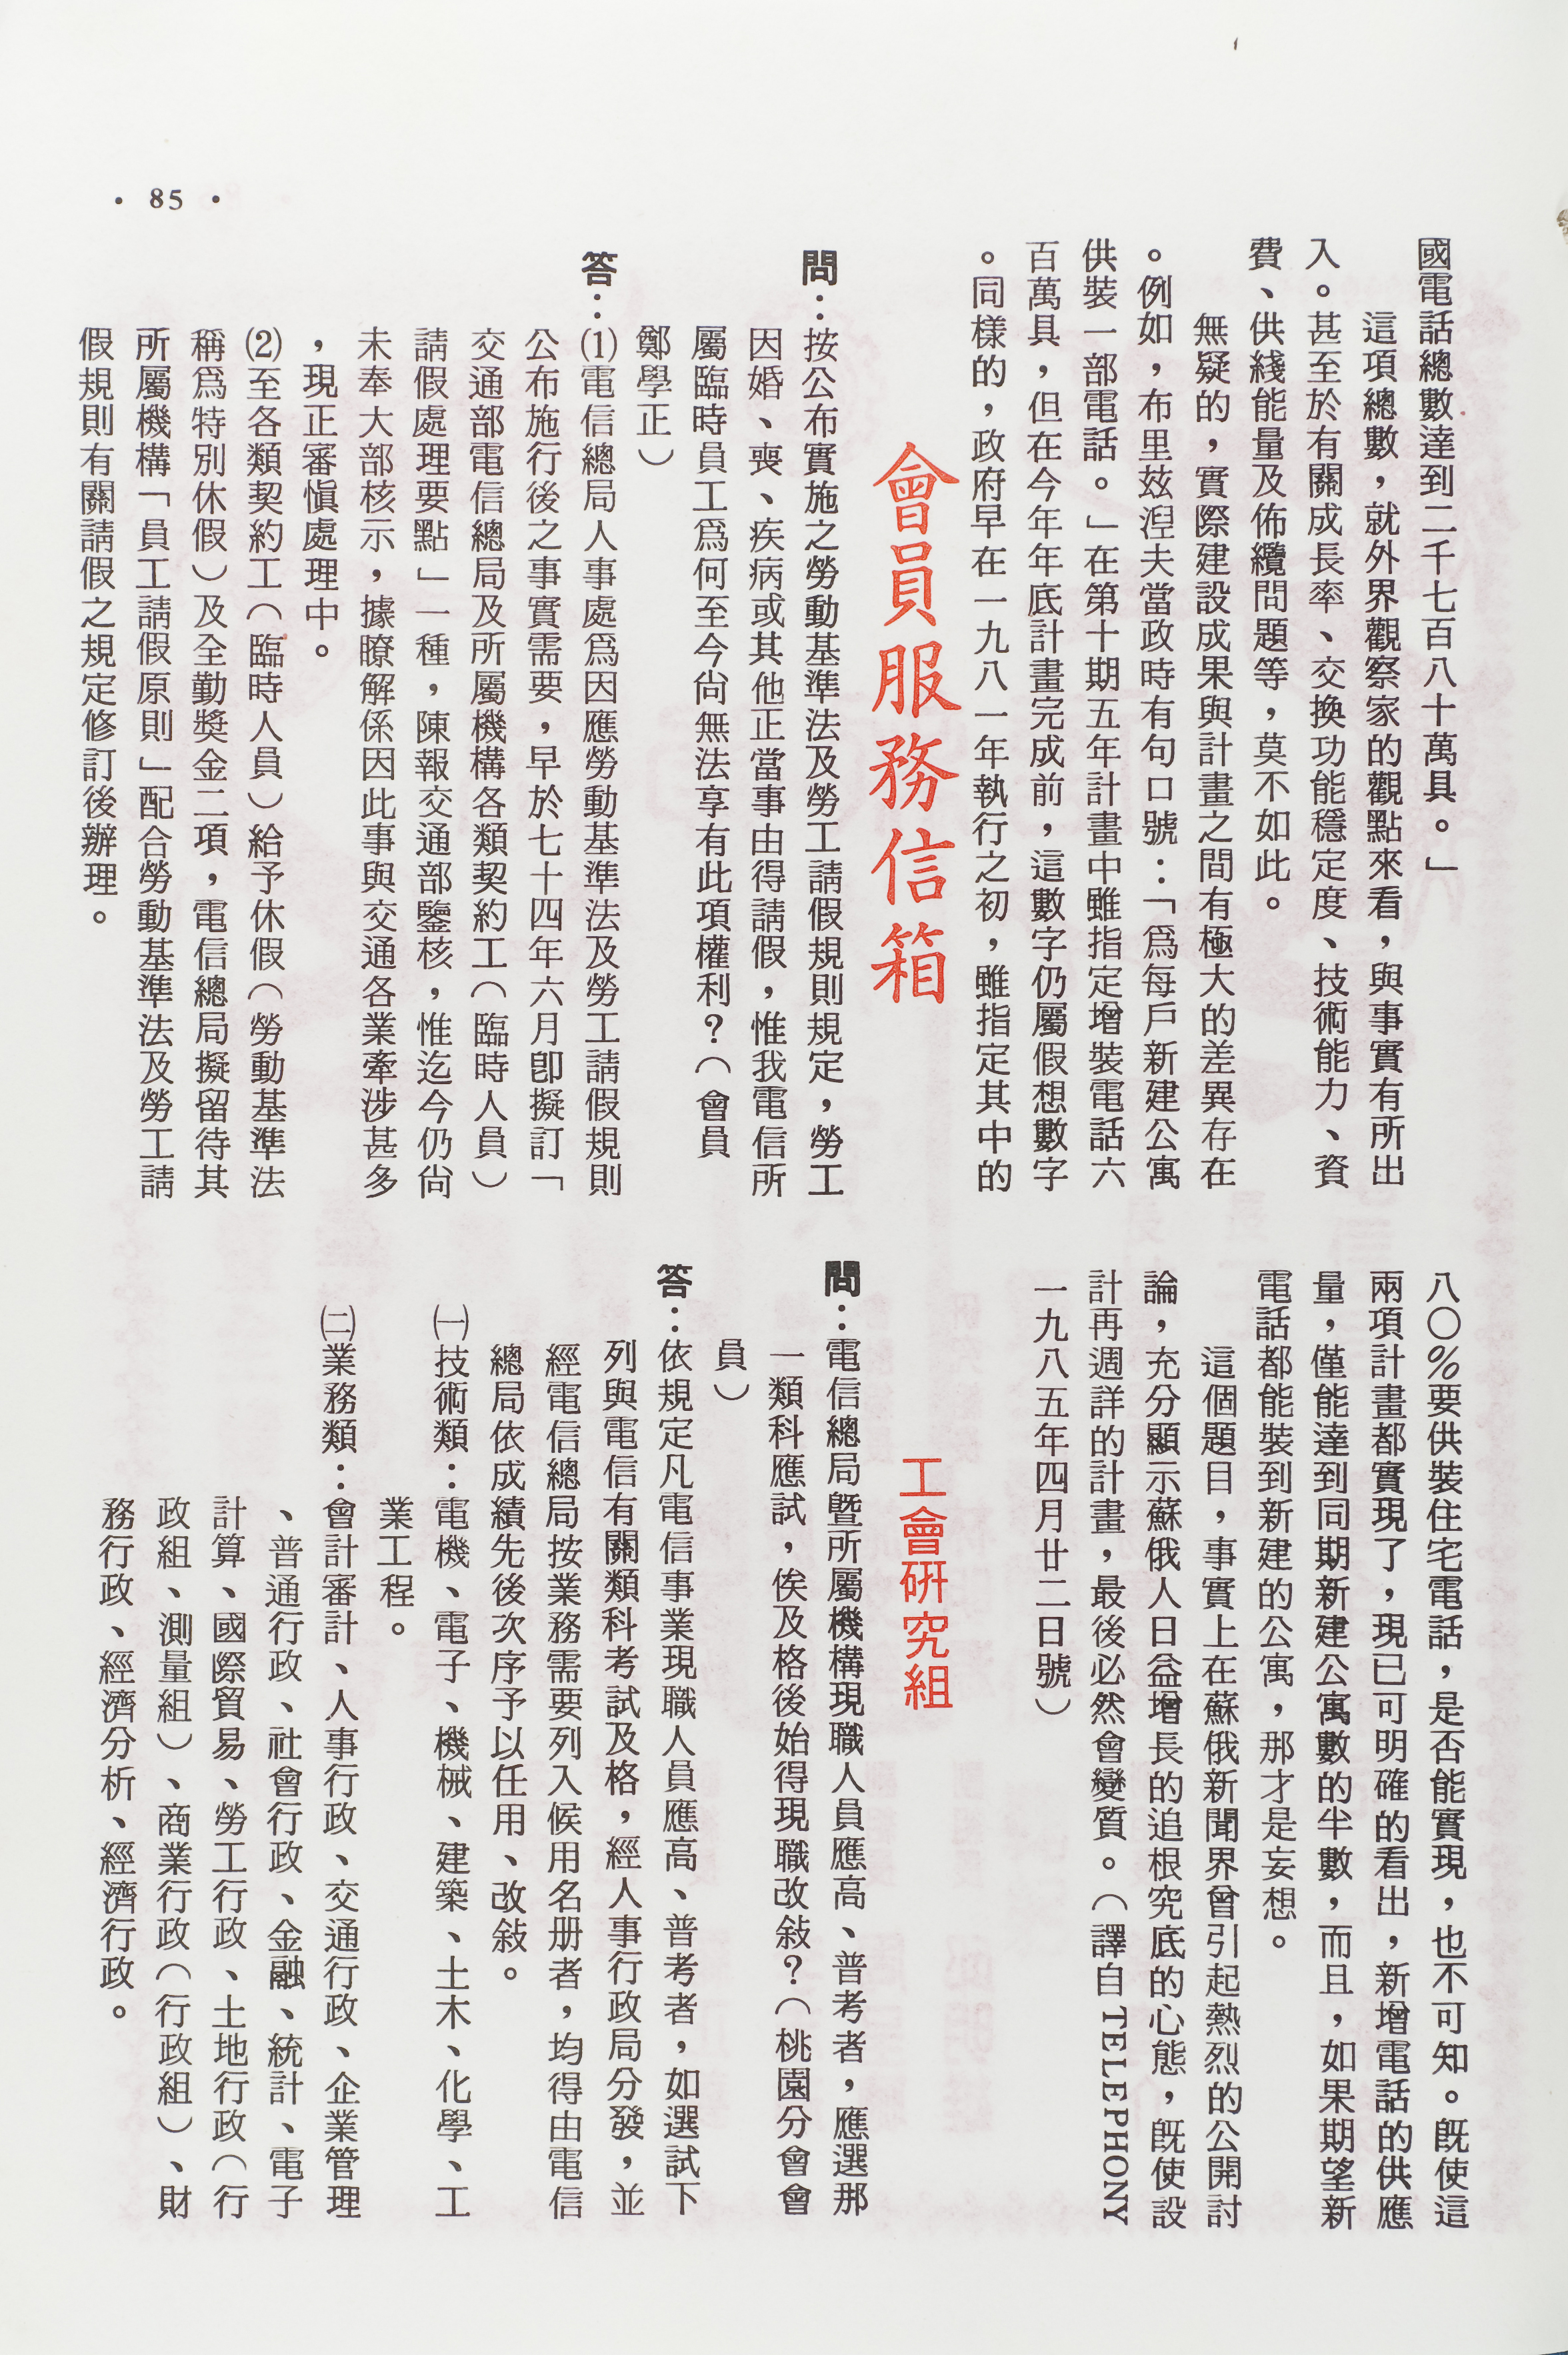 國電話總數達到二千七百八十萬具。」
這項總數，就外界觀察家的觀點來看，與事實有所出
入。甚至於有關成長率、交換功能穩定度、技術能力、資
費、供綫能量及佈纜問題等，莫不如此。
無疑的，實際建設成果與計畫之間有極大的差異存在
。例如，布里玆湼夫當政時有句口號：「爲每戶新建公寓
供裝一部電話。」在第十期五年計畫中雖指定增裝電話六
百萬具，但在今年年底計畫完成前，這數字仍屬假想數字
。同樣的，政府早在一九八一年執行之初，雖指定其中的
八〇%要供裝住宅電話，是否能實現，也不可知。旣使這
兩項計畫都實現了，現已可明確的看出，新增電話的供應
量，僅能達到同期新建公寓數的半數，而且，如果期望新
電話都能裝到新建的公寓，那才是妄想。
這個題目，事實上在蘇俄新聞界曾引起熱烈的公開討
論，充分顯示蘇俄人日益增長的追根究底的心態，旣使設
計再週詳的計畫，最後必然會變質。（譯自TELEPHONY
一九八五年四月廿二日號）
會員服務信箱
工會研究組
問：按公布實施之勞動基準法及勞工請假規則規定，勞工
因婚、喪、疾病或其他正當事由得請假，惟我電信所
屬臨時員工爲何至今尙無法享有此項權利？（會員
鄭學正）
答：⑴電信總局人事處爲因應勞動基準法及勞工請假規則
公布施行後之事實需要，早於七十四年六月卽擬訂「
交通部電信總局及所屬機構各類契約工（臨時人員）
請假處理要點」一種，陳報交通部鑒核，惟迄今仍尙
未奉大部核示，據瞭解係因此事與交通各業牽涉甚多
，現正審愼處理中。
⑵至各類契約工（臨時人員）給予休假（勞動基準法
稱爲特別休假）及全勤獎金二項，電信總局擬留待其
所屬機構「員工請假原則」配合勞動基準法及勞工請
假規則有關請假之規定修訂後辦理。
問：電信總局曁所屬機構現職人員應高、普考者，應選那
一類科應試，俟及格後始得現職改敍？（桃園分會會
員）
答：依規定凡電信事業現職人員應高、普考者，如選試下
列與電信有關類科考試及格，經人事行政局分發，並
經電信總局按業務需要列入候用名册者，均得由電信
總局依成績先後次序予以任用、改敍。
㈠技術類：電機、電子、機械、建築、土木、化學、工
業工程。
㈡業務類：會計審計、人事行政、交通行政、企業管理
、普通行政、社會行政、金融、統計、電子
計算、國際貿易、勞工行政、土地行政（行
政組、測量組）、商業行政（行政組）、財
務行政、經濟分析、經濟行政。
• 85 •